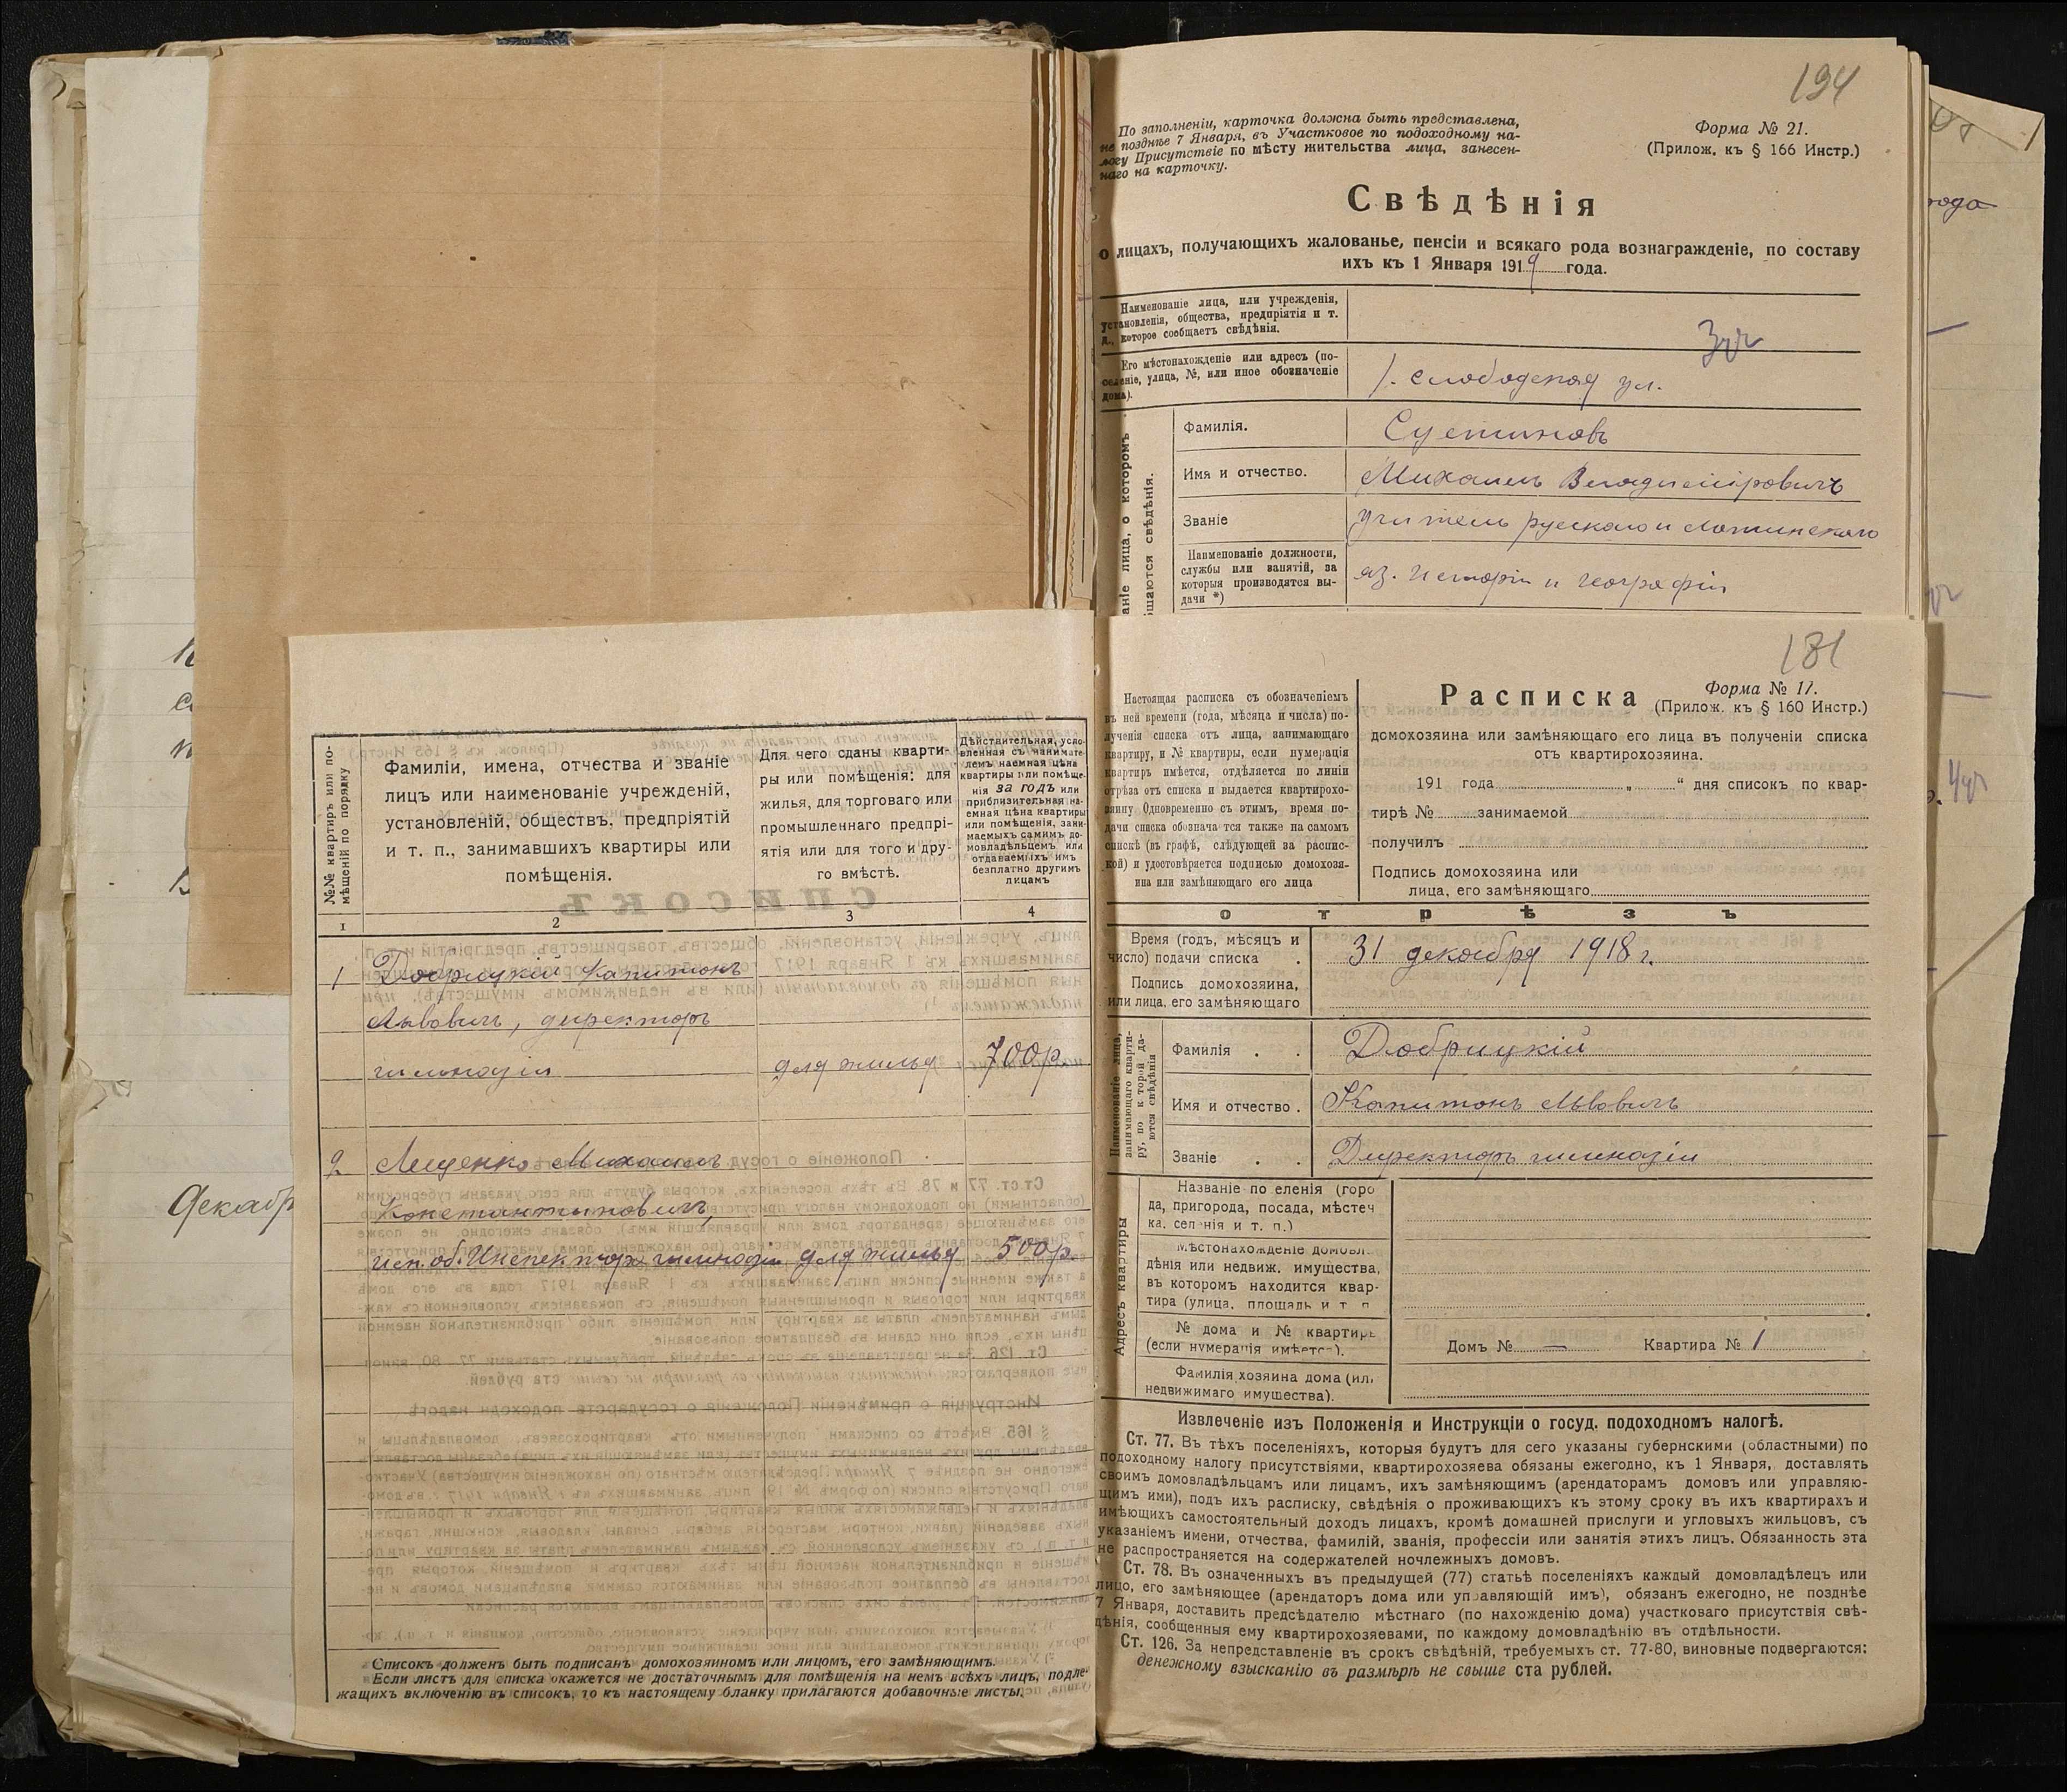 194
По заполненіи, карточка должна быть представлена,
не позднѣе 7 Января, въ Участковое по подоходному на-
логу Присутствіе по мѣсту жительства лица, занесен-
наго на карточку.
Форма № 21.
(Прилож. къ § 166 Инстр.)
Свѣдѣнія
о лицахъ, получающихъ жалованье, пенсіи и всякаго рода вознагражденіе, по составу
ихъ къ 1 Января 1919 года.
Наименованіе лица, или учрежденія,
установленія, общества, предпріятія и т.
д., которое сообщаетъ свѣдѣнія.
Его мѣстонахожденіе или адресъ (по-
селеніе, улица, №, или иное обозначеніе
дома).
слободская ул.
аніе лица, о которомъ
щаются свѣдѣнія.
Фамилія.
Суетиновъ
Имя и отчество.
Михаилъ Владиміровичъ
Званіе
учитель русскаго и латинскаго
Наименованіе должности,
службы или занятій, за
которыя производятся вы-
дачи *)
яз. Исторіи и географіи
года
Декабр
№№ квартиръ или по-
мѣщеній по порядку
Фамиліи, имена, отчества и званіе
лицъ или наименованіе учрежденій,
установленій, обществъ, предпріятій
и т. п., занимавшихъ квартиры или
помѣщенія.
Для чего сданы кварти-
ры или помѣщенія: для
жилья, для торговаго или
промышленнаго предпрі-
ятія или для того и дру-
го вмѣстѣ.
Дѣйствительная, усло-
вленная съ нанимате-
лемъ наемная цѣна
квартиры или помѣще-
нія за годъ или
приблизительная на-
емная цѣна квартиры
или помѣщенія, зани-
маемыхъ самимъ до-
мовладѣльцемъ или
отдаваемыхъ имъ
безплатно другимъ
лицамъ
1 2 3 4
1 Добрицкій Капитонъ
Львовичъ, директоръ
гимназіи для жилья 700р.
2 Лещенко Михаилъ
Константиновичъ,
исп. об. Инспектора гимназіи для жилья 500р.
Списокъ долженъ быть подписанъ домохозяиномъ или лицомъ, его замѣняющимъ.
Если листъ для списка окажется не достаточнымъ для помѣщенія на немъ всѣхъ лицъ, подле-
жащихъ включенію въ списокъ, то къ настоящему бланку прилагаются добавочные листы.
181
Настоящая расписка съ обозначеніемъ
въ ней времени (года, мѣсяца и числа) по-
лученія списка отъ лица, занимающаго
квартиру, и № квартиры, если нумерація
квартиръ имѣется, отдѣляется по линіи
отрѣза отъ списка и выдается квартирохо-
зяину. Одновременно съ этимъ, время по-
дачи списка обозначается также на самомъ
спискѣ (въ графѣ, слѣдующей за распис-
кой) и удостовѣряется подписью домохозя-
ина или замѣняющаго его лица
Расписка
Форма № 17.
(Прилож. къ § 160 Инстр.)
домохозяина или замѣняющаго его лица въ полученіи списка
отъ квартирохозяина.
191 года „ “ дня списокъ по квар-
тирѣ № занимаемой
получилъ
Подпись домохозяина или
лица, его замѣняющаго
отрѣзъ
Время (годъ, мѣсяцъ и
число) подачи списка .
31 декабря 1918 г.
Подпись домохозяина,
или лица, его замѣняющаго
Наименованіе лица,
занимающаго кварти-
ру, по которой да-
ются свѣдѣнія
Фамилія . .
Добрицкій
Имя и отчество .
Капитонъ Львовичъ
Званіе . .
Директоръ гимназіи
Адресъ квартиры
Названіе поселенія (горо
да, пригорода, посада, мѣстеч
ка, селенія и т. п.)
Мѣстонахожденіе домовл-
дѣнія или недвиж. имущества,
въ которомъ находится квар-
тира (улица, площадь и т п
№ дома и № квартиры
(если нумерація имѣется).
Домъ № — Квартира № 1
Фамилія хозяина дома (или
недвижимаго имущества).
Извлеченіе изъ Положенія и Инструкціи о госуд. подоходномъ налогѣ.
Ст. 77. Въ тѣхъ поселеніяхъ, которыя будутъ для сего указаны губернскими (областными) по
подоходному налогу присутствіями, квартирохозяева обязаны ежегодно, къ 1 Января, доставлять
своимъ домовладѣльцамъ или лицамъ, ихъ замѣняющимъ (арендаторамъ домовъ или управляю-
щимъ ими), подъ ихъ расписку, свѣдѣнія о проживающихъ къ этому сроку въ ихъ квартирахъ и
имѣющихъ самостоятельный доходъ лицахъ, кромѣ домашней прислуги и угловыхъ жильцовъ, съ
указаніемъ имени, отчества, фамилій, званія, профессіи или занятія этихъ лицъ. Обязанность эта
не распространяется на содержателей ночлежныхъ домовъ.
Ст. 78. Въ означенныхъ въ предыдущей (77) статьѣ поселеніяхъ каждый домовладѣлецъ или
лицо, его замѣняющее (арендаторъ дома или управляющій имъ), обязанъ ежегодно, не позднѣе
7 Января, доставить предсѣдателю мѣстнаго (по нахожденію дома) участковаго присутствія свѣ-
дѣнія, сообщенныя ему квартирохозяевами, по каждому домовладѣнію въ отдѣльности.
Ст. 126. За непредставленіе въ срокъ свѣдѣній, требуемыхъ ст. 77-80, виновные подвергаются:
денежному взысканію въ размѣрѣ не свыше ста рублей.